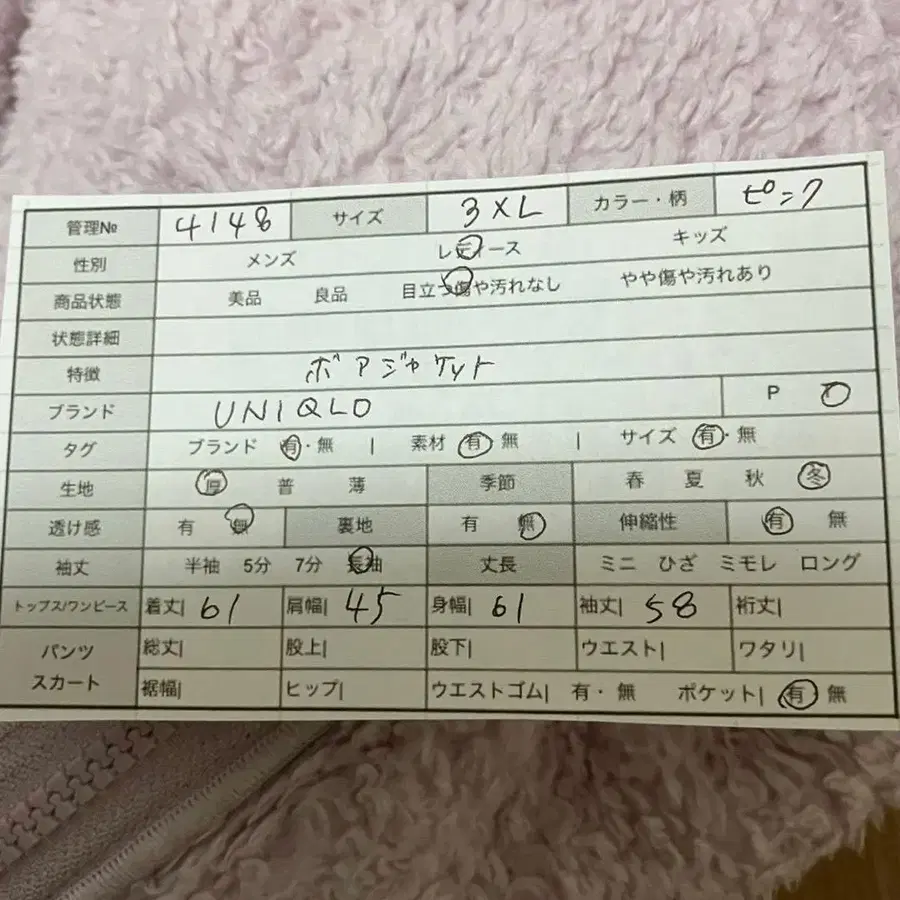 管理№ 4148 サイズ 3XL カラー・柄 ピンク
性別 メンズ レディース キッズ
商品状態 美品 良品 目立つ傷や汚れなし やや傷や汚れあり
状態詳細
特徴 ボアジャケット
ブランド UNIQLO P
タグ ブランド 有・無 | 素材 有 無 | サイズ 有・無
生地 厚 普 薄 季節 春 夏 秋 冬
透け感 有 無 裏地 有 無 伸縮性 有 無
袖丈 半袖 5分 7分 長袖 丈長 ミニ ひざ ミモレ ロング
トップス/ワンピース 着丈| 61 肩幅| 45 身幅| 61 袖丈| 58 裄丈|
パンツ スカート 総丈| 股上| 股下| ウエスト| ワタリ|
裾幅| ヒップ| ウエストゴム| 有・無 ポケット| 有 無